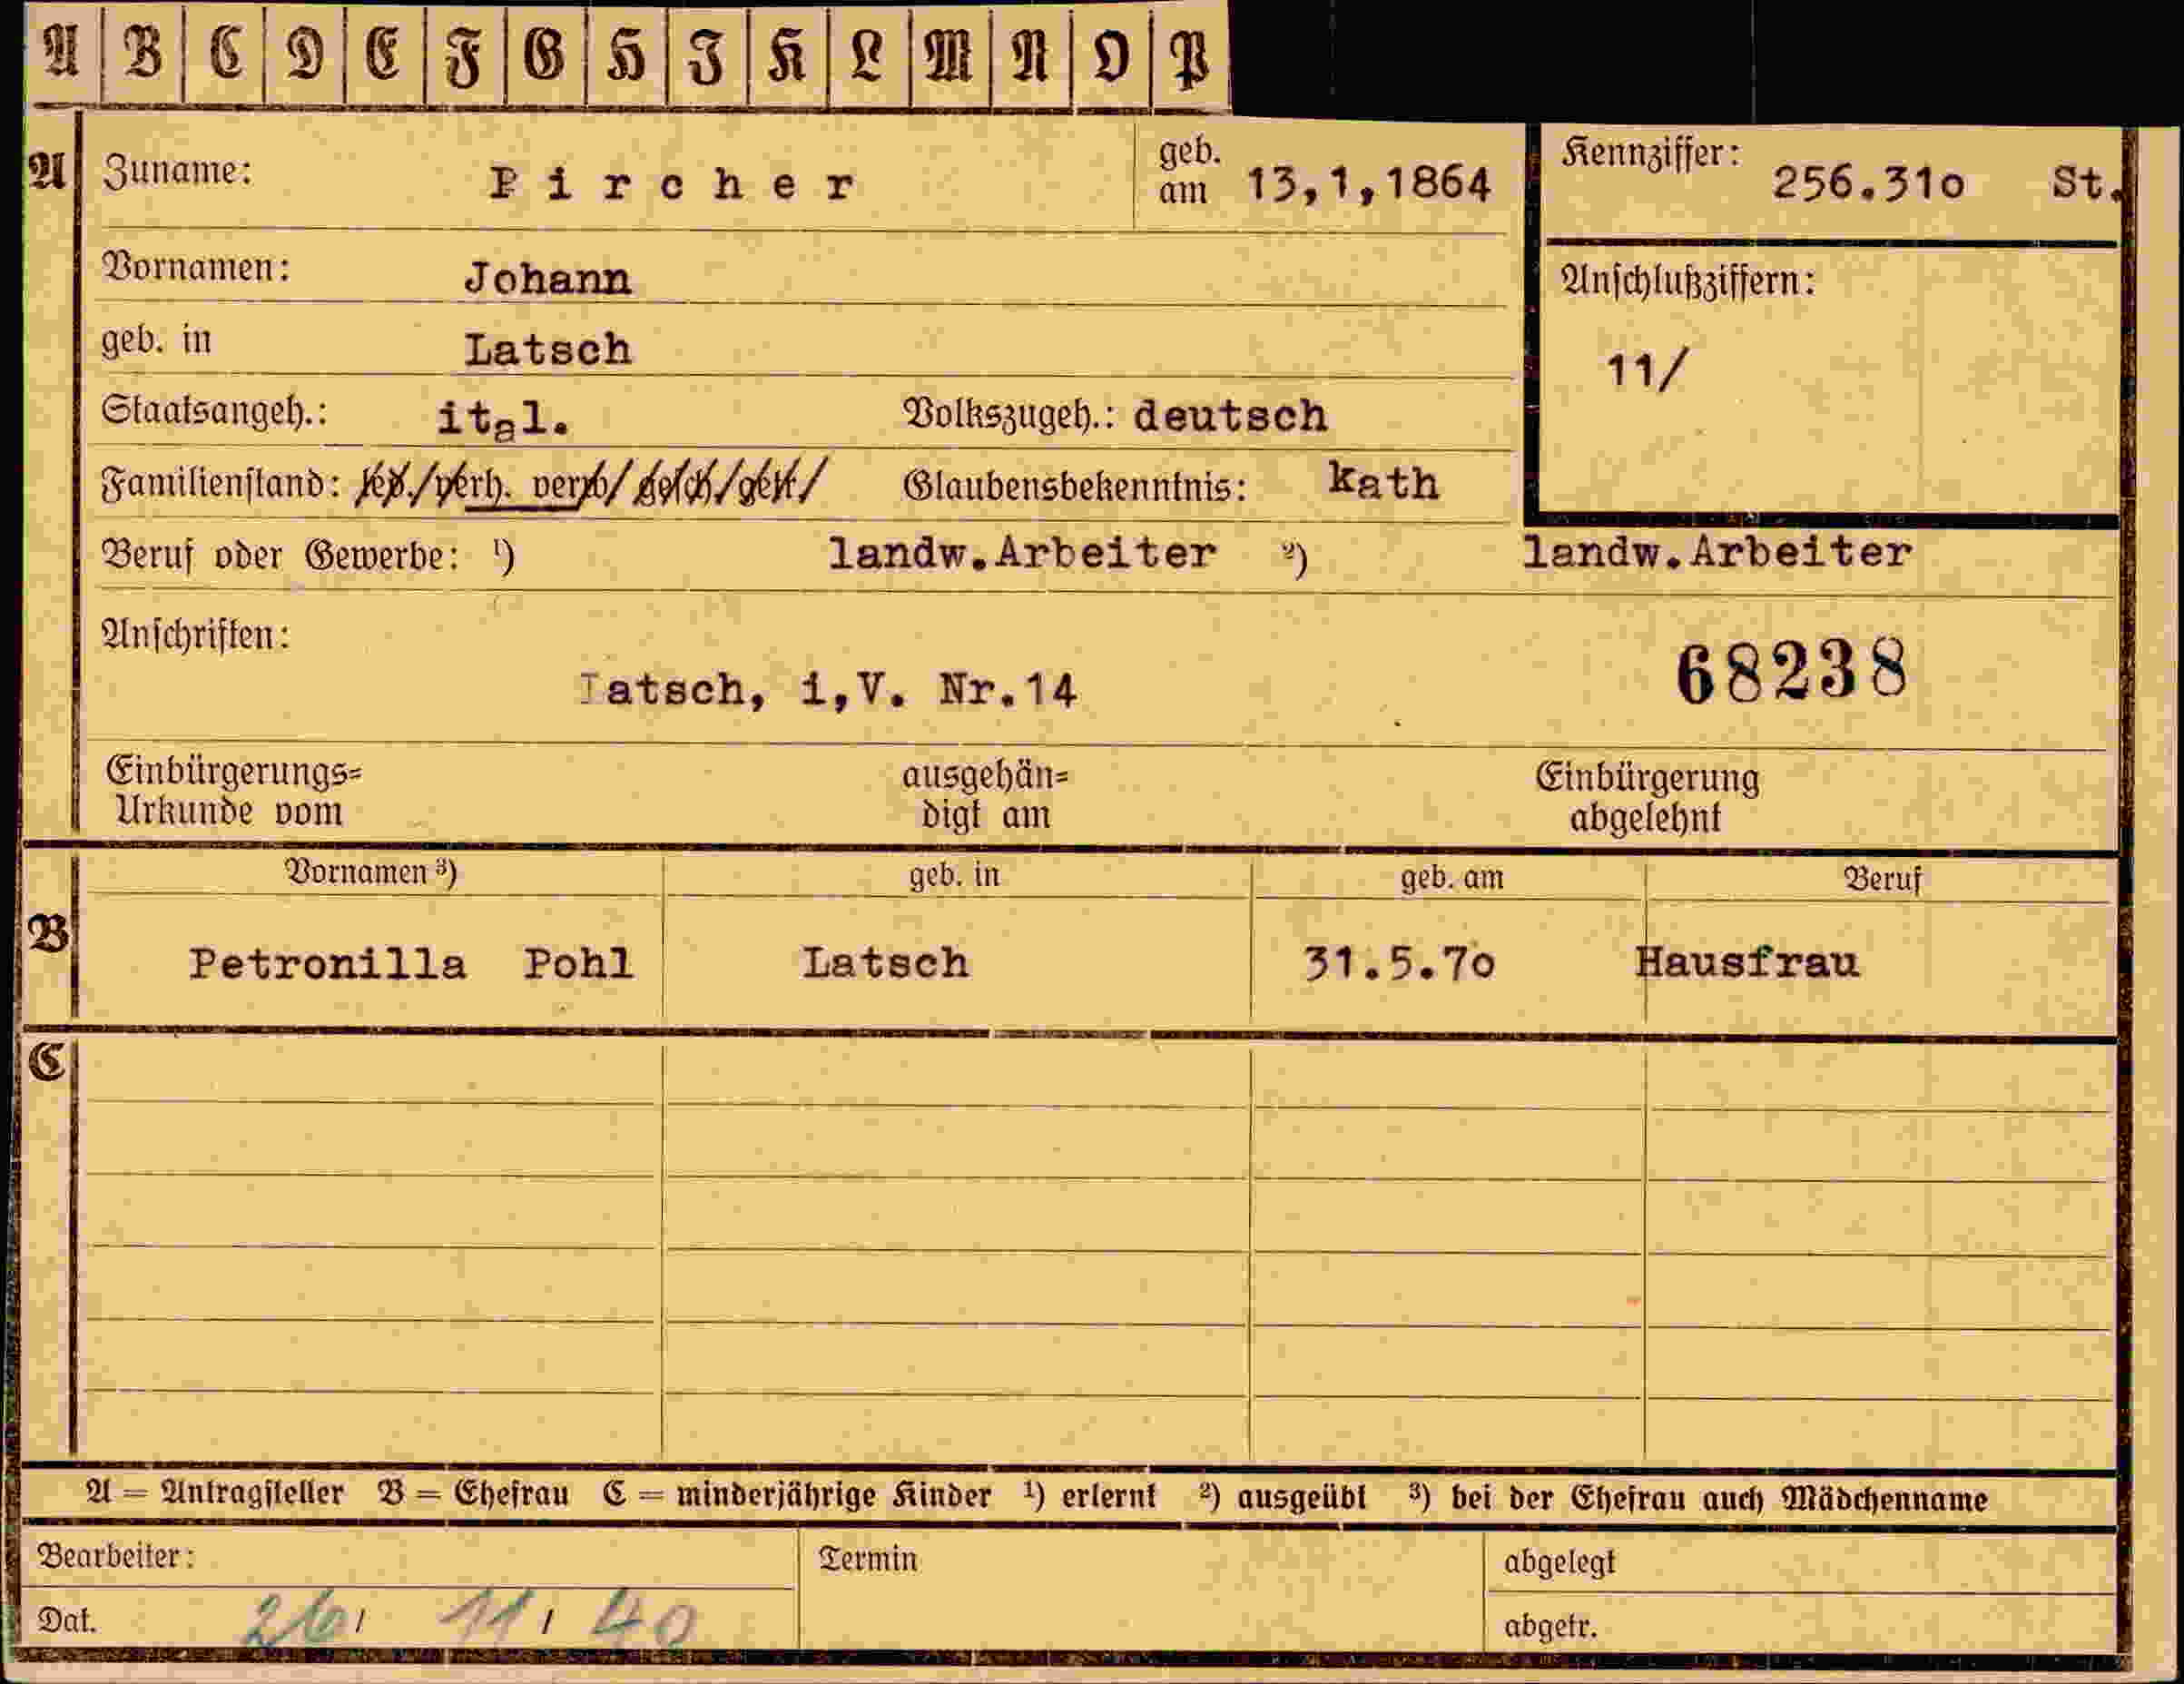 A B C D E F G H I K L M N O P
A Zuname: Pircher geb. am 13,1,1864 Kennziffer: 256.31o St.
Vornamen: Johann Anschlußziffern:
geb. in Latsch 11/
Staatsangeh.: ital. Volkszugeh.: deutsch
Familienstand: led./verh. verw/gesch/getr/ Glaubensbekenntnis: kath
Beruf oder Gewerbe: ¹) landw.Arbeiter ²) landw.Arbeiter
Anschriften: 68238
Latsch, i,V. Nr.14
Einbürgerungs= ausgehän= Einbürgerung
Urkunde vom digt am abgelehnt
Vornamen ³) geb. in geb. am Beruf
B Petronilla Pohl Latsch 31.5.7o Hausfrau
C
A = Antragsteller B = Ehefrau C = minderjährige Kinder ¹) erlernt ²) ausgeübt ³) bei der Ehefrau auch Mädchenname
Bearbeiter: Termin abgelegt
Dat. 26/ 11/ 40 abgetr.